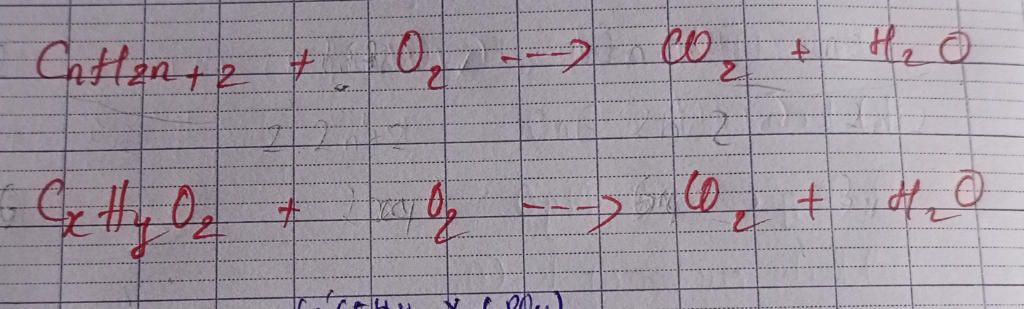 CnH2n+2 + O2 ---> CO2 + H2O
CxHyO2 + O2 ---> CO2 + H2O